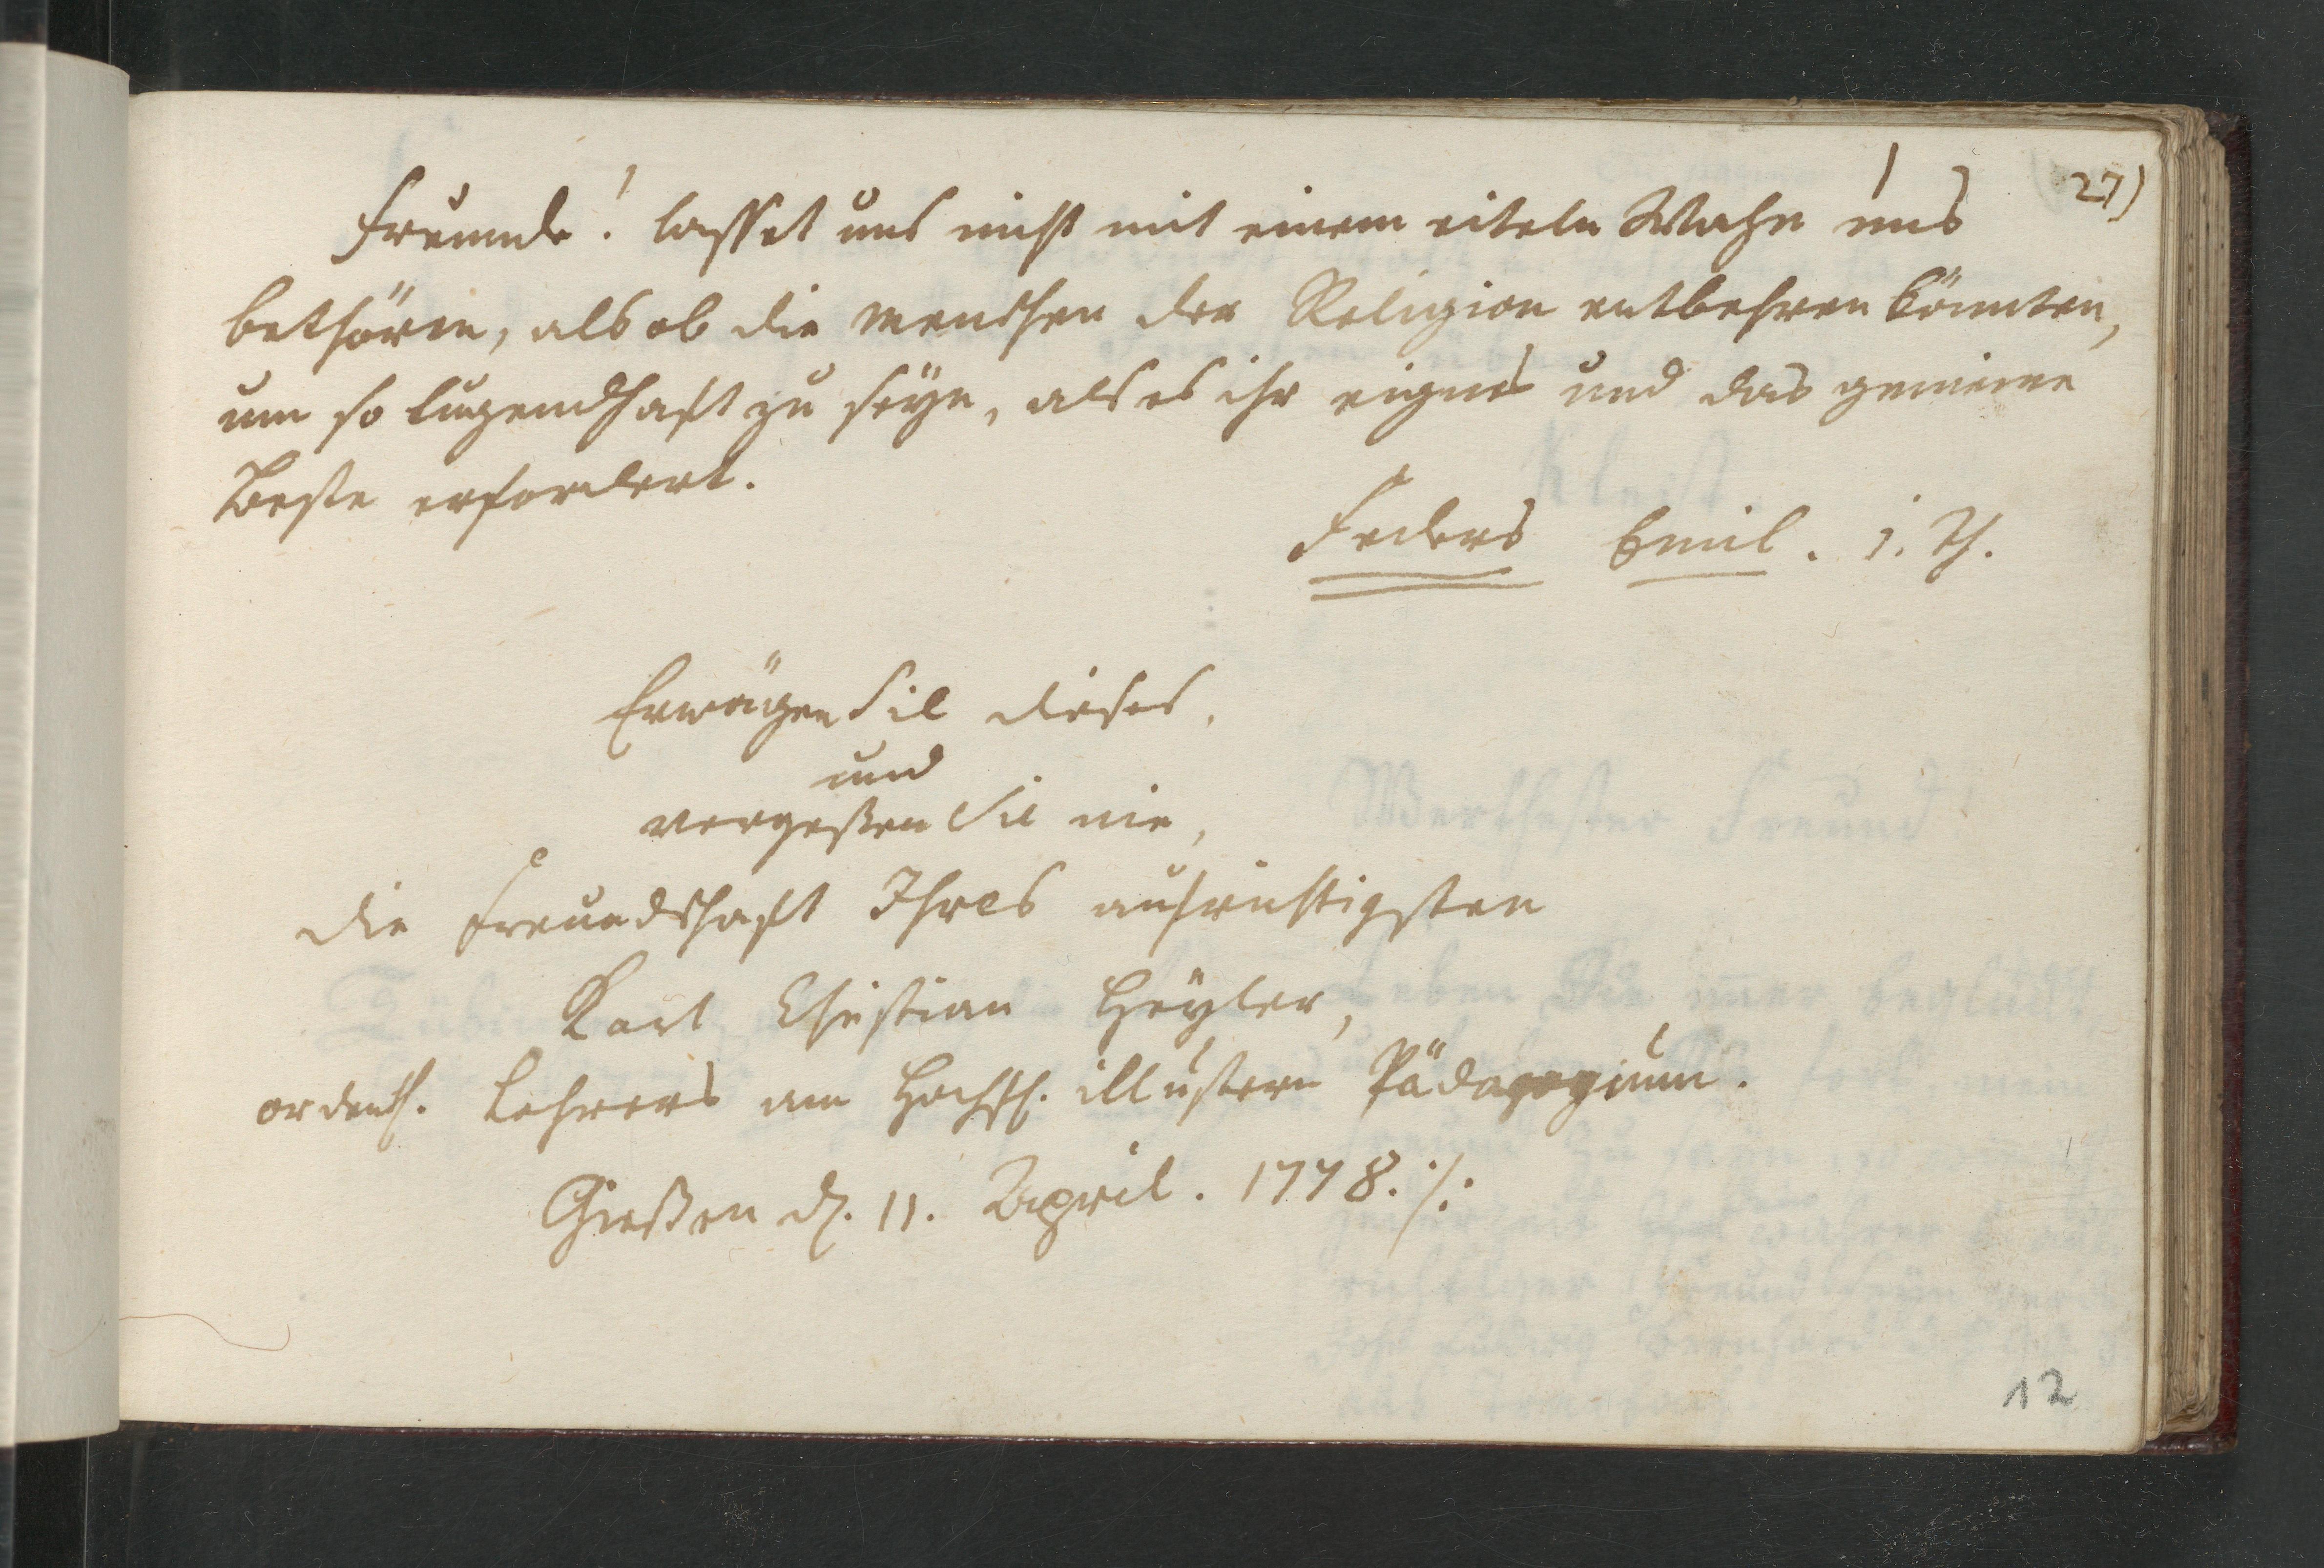 27)
Freunde! lasset uns nicht mit einem eiteln Wahn uns
bethören, als ob die Menschen der Religion entbehren könnten,
um so tugendhaft zu seÿn, als es ihr eignes und das gemeine
Beste erfordert.
Feders Emil. 1. Th.
Erwägen Sie dieses,
und
vergeßen Sie nie,
die Freundschaft Ihres aufrichtigsten
Karl Christian Heÿler,
ordentl. Lehrers am Hochfl. illustern Pädagogium.
Gießen d. 11. April. 1778. ·/.
12